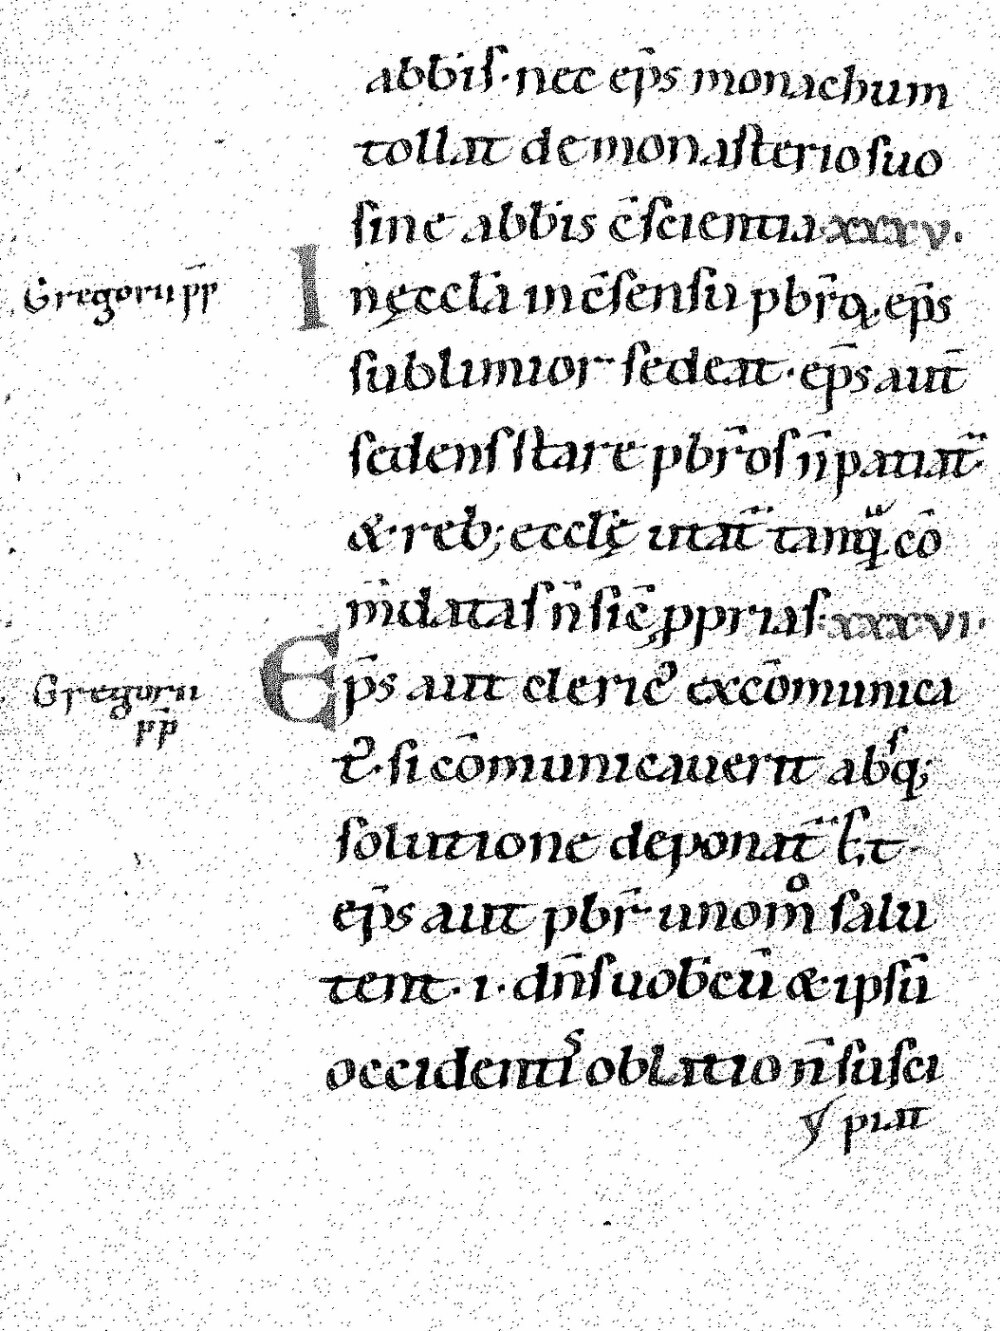 abbiſ· nec ep̄s monachum
tollat de monaſterio ſuo
ſine abbis c̄ſcientia xxxv.
Gregorii pp̄
In ęccl̄a in c̄ſenſu pbr̄oꝝ ep̄s
ſublimior ſedeat· ep̄s aut̄
ſedenſ ſtare pbr̄oſ n̄ patiat̄
&· reb; eccl̄ę utat̄ tamq̄ cō
m̄dataſ n̄ ſic̄ ꝓpriaſ· xxxvi.
Gregorii
pp̄
Ep̄s aut cleric᾽ excōmunica
t᾽· ſi cōmunicauerit abſq;
ſolutione deponat̄
ep̄s aut pbr̄· unom̊ ſalu
tent· i· dn̄ſ uobcū &· ipſū
occidentis oblatio n̄ ſuſci
piat